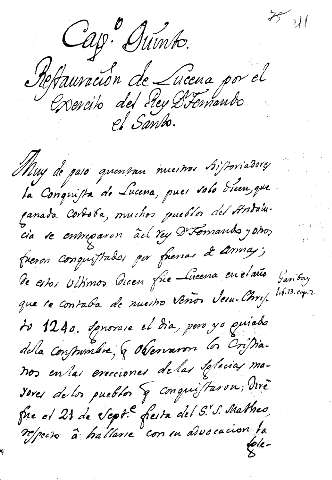 41
Cap.º Quinto.
Restauracion de Lucena por el
exercito del Rey Dn Fernando
el Santo.
Muy de paso quentan nuestros Historiadores
la Conquista de Lucena, pues solo dicen, que
ganada Cordoba, muchos pueblos del Andalu-
cia se entregaron âel rey Dn Fernando y otros
fueron conquistados por fuerza de Armas;
de estos ultimos dicen fue Lucena en el año
que se contaba de nuestro Señor Jesu-Chris-
to 1240. Ignorase el dia, pero yo guiado
de la constumbre, q observaron los Cristia-
nos en las erecciones de las Iglecias ma-
yores de los pueblos q conquistaron, diré
fue el 21 de Septe fiesta del Sr. S. Matheo,
respecto â hallarse con su advocacion la
Igle-
Garibay
lib. 13. cap. 2